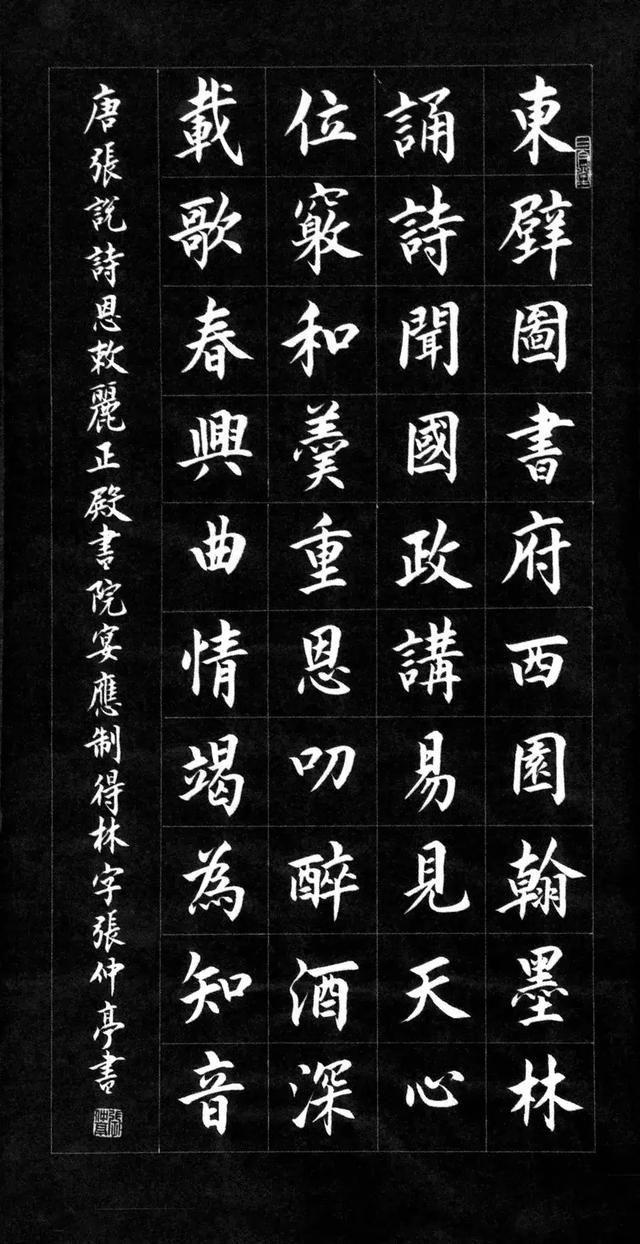 東壁圖書府西園翰墨林
誦詩聞國政講易見天心
位竅和羹重恩叨醉酒深
載歌春興曲情竭為知音
唐張說詩恩敕麗正殿書院宴應制得林字張仲亭書